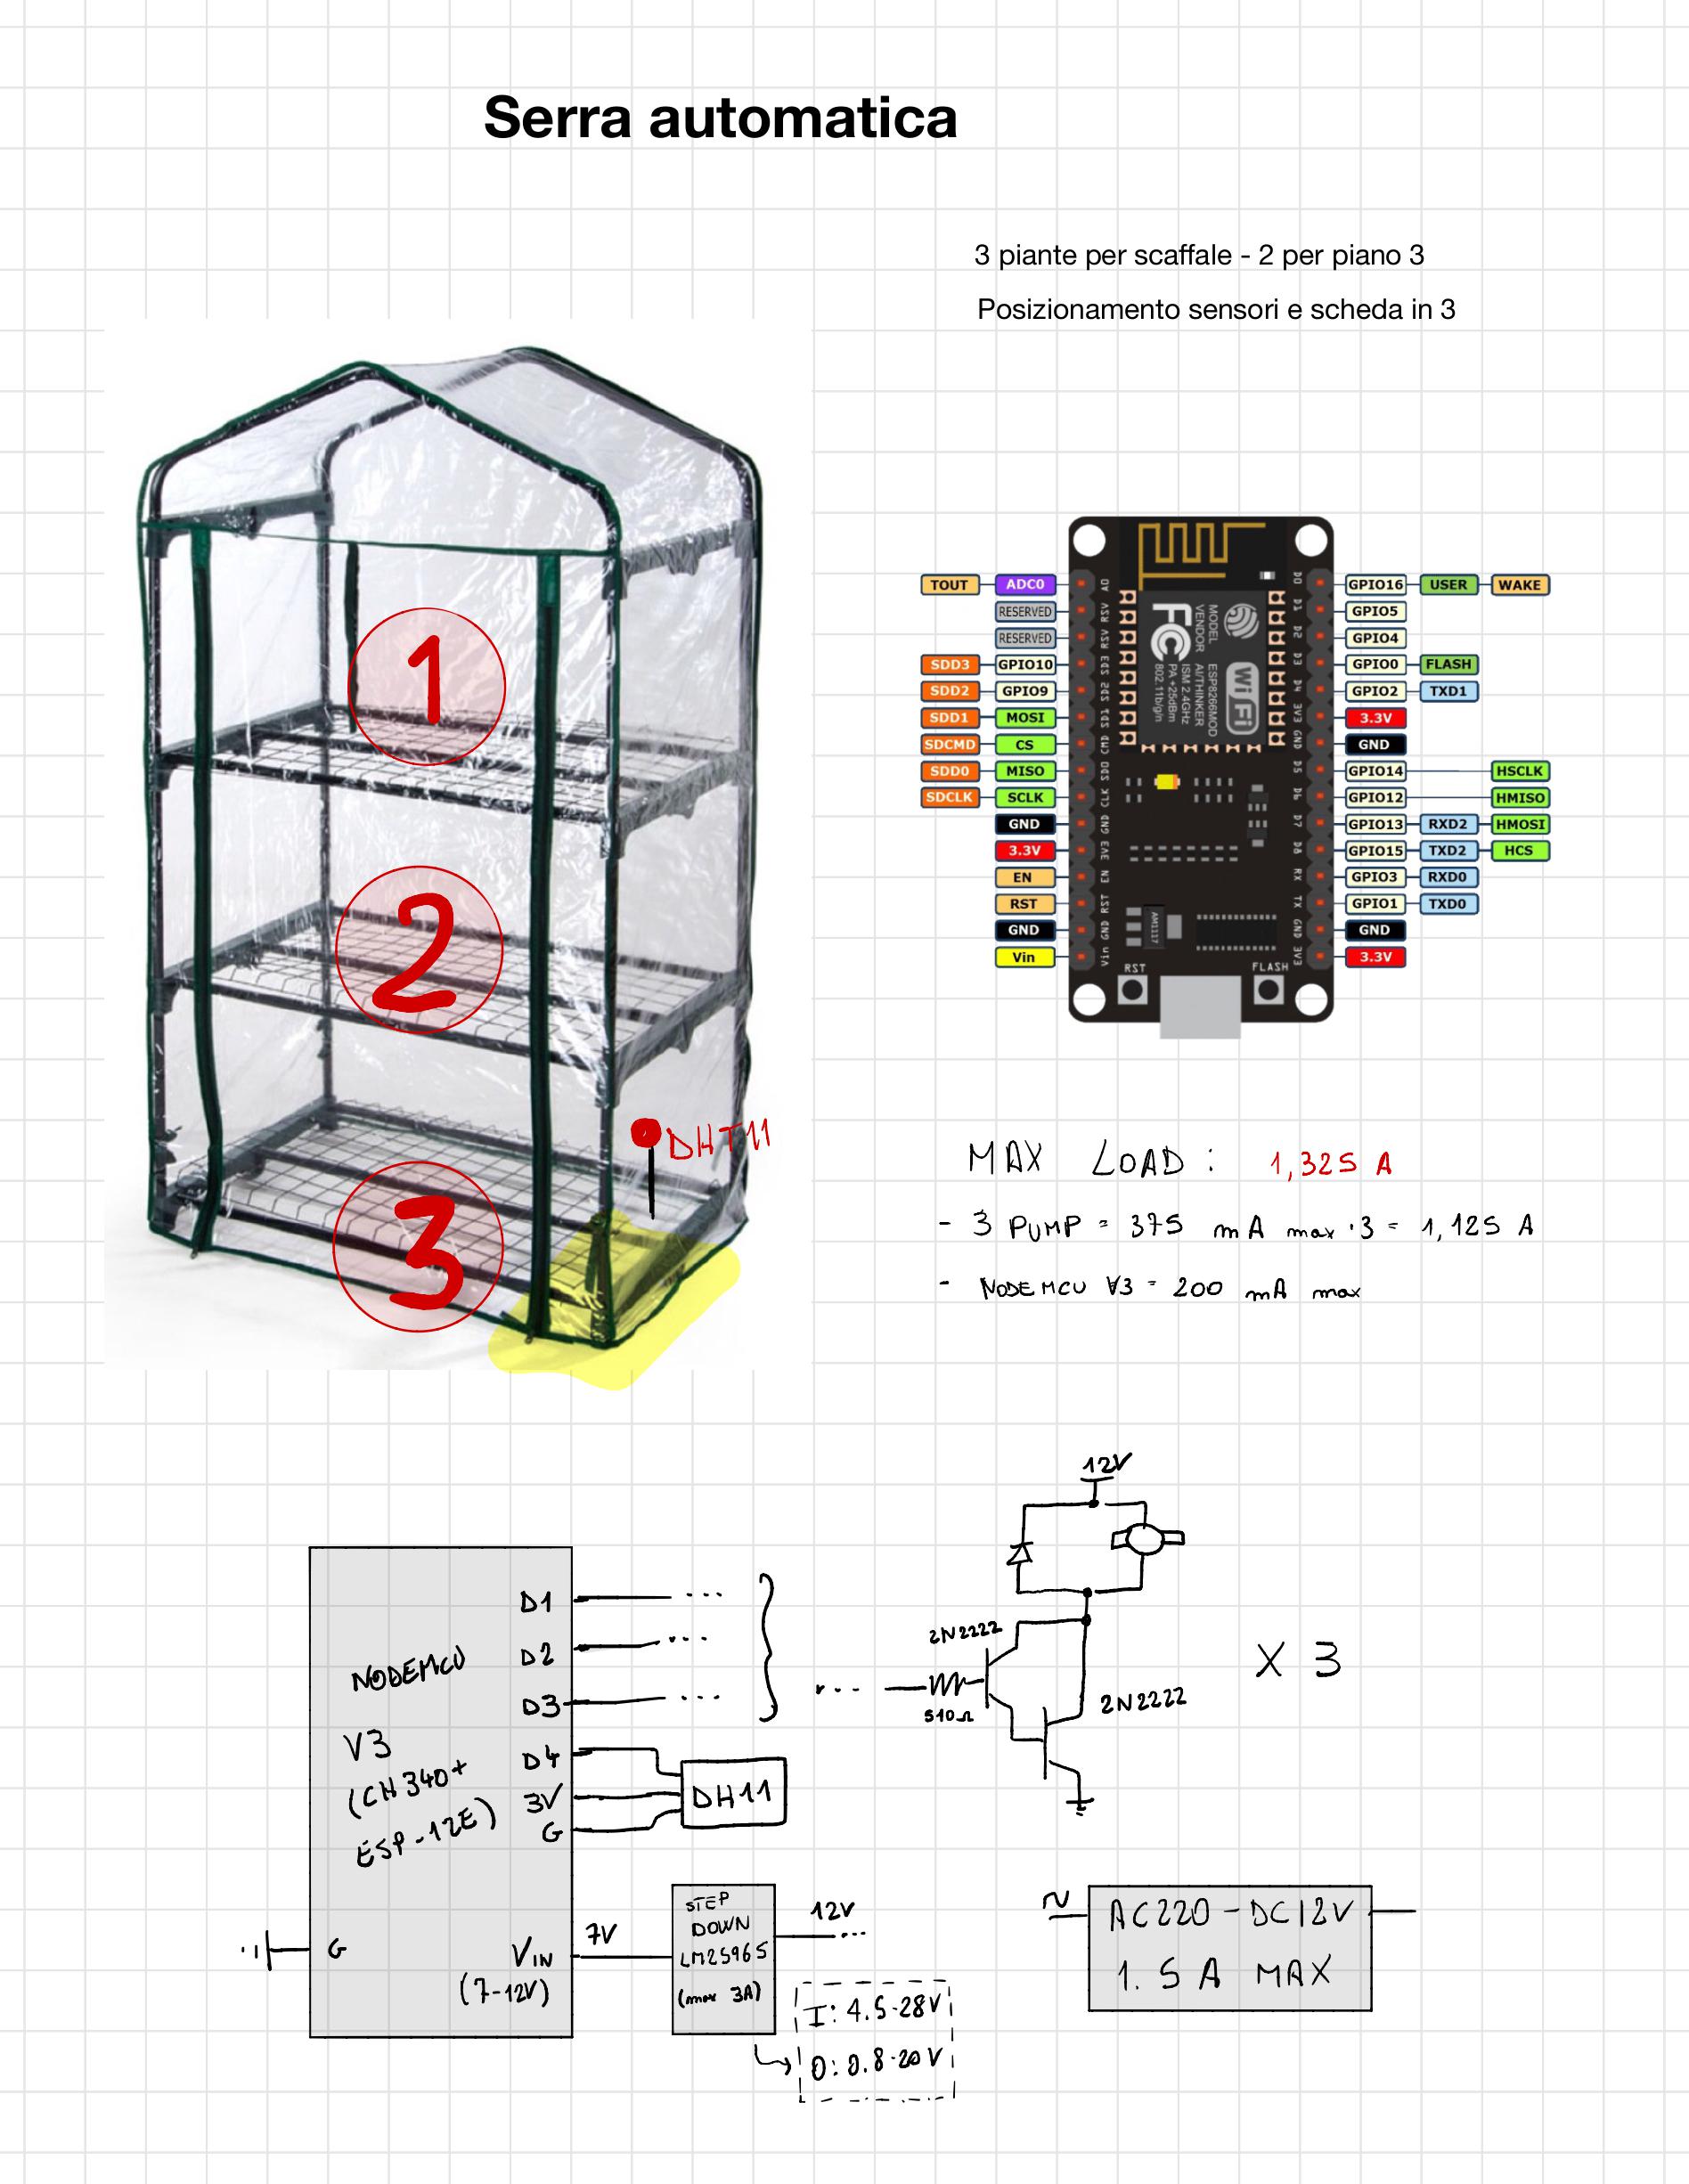 Serra automatica
3 piante per scaffale - 2 per piano 3
Posizionamento sensori e scheda in 3
1
2
3
DHT11
TOUT ADC0
RESERVED
RESERVED
SDD3 GPIO10
SDD2 GPIO9
SDD1 MOSI
SDCMD CS
SDD0 MISO
SDCLK SCLK
GND
3.3V
EN
RST
GND
Vin
A0
RSV
RSV
SD3
SD2
SD1
CMD
SD0
CLK
GND
3V3
EN
RST
GND
Vin
MODEL ESP8266MOD
VENDOR AI/THINKER
ISM 2.4GHz
PA +25dBm
802.11b/g/n
FC
WiFi
AM1117
RST
FLASH
D0
D1
D2
D3
D4
3V3
GND
D5
D6
D7
D8
RX
TX
GND
3V3
GPIO16 USER WAKE
GPIO5
GPIO4
GPIO0 FLASH
GPIO2 TXD1
3.3V
GND
GPIO14 HSCLK
GPIO12 HMISO
GPIO13 RXD2 HMOSI
GPIO15 TXD2 HCS
GPIO3 RXD0
GPIO1 TXD0
GND
3.3V
MAX LOAD: 1,325 A
- 3 PUMP = 375 mA max ·3 = 1,125 A
- NODEMCU V3 = 200 mA max
NODEMCU
V3
(CH340+
ESP-12E)
D1 ...
D2 ...
D3 ...
D4
3V
G
DH11
G
VIN
(7-12V)
7V
STEP
DOWN
LM2596S
(max 3A)
12V
...
I: 4.5-28V
O: 0.8-20V
12V
2N2222
... 510Ω
2N2222
X 3
~ AC220-DC12V
1.5A MAX